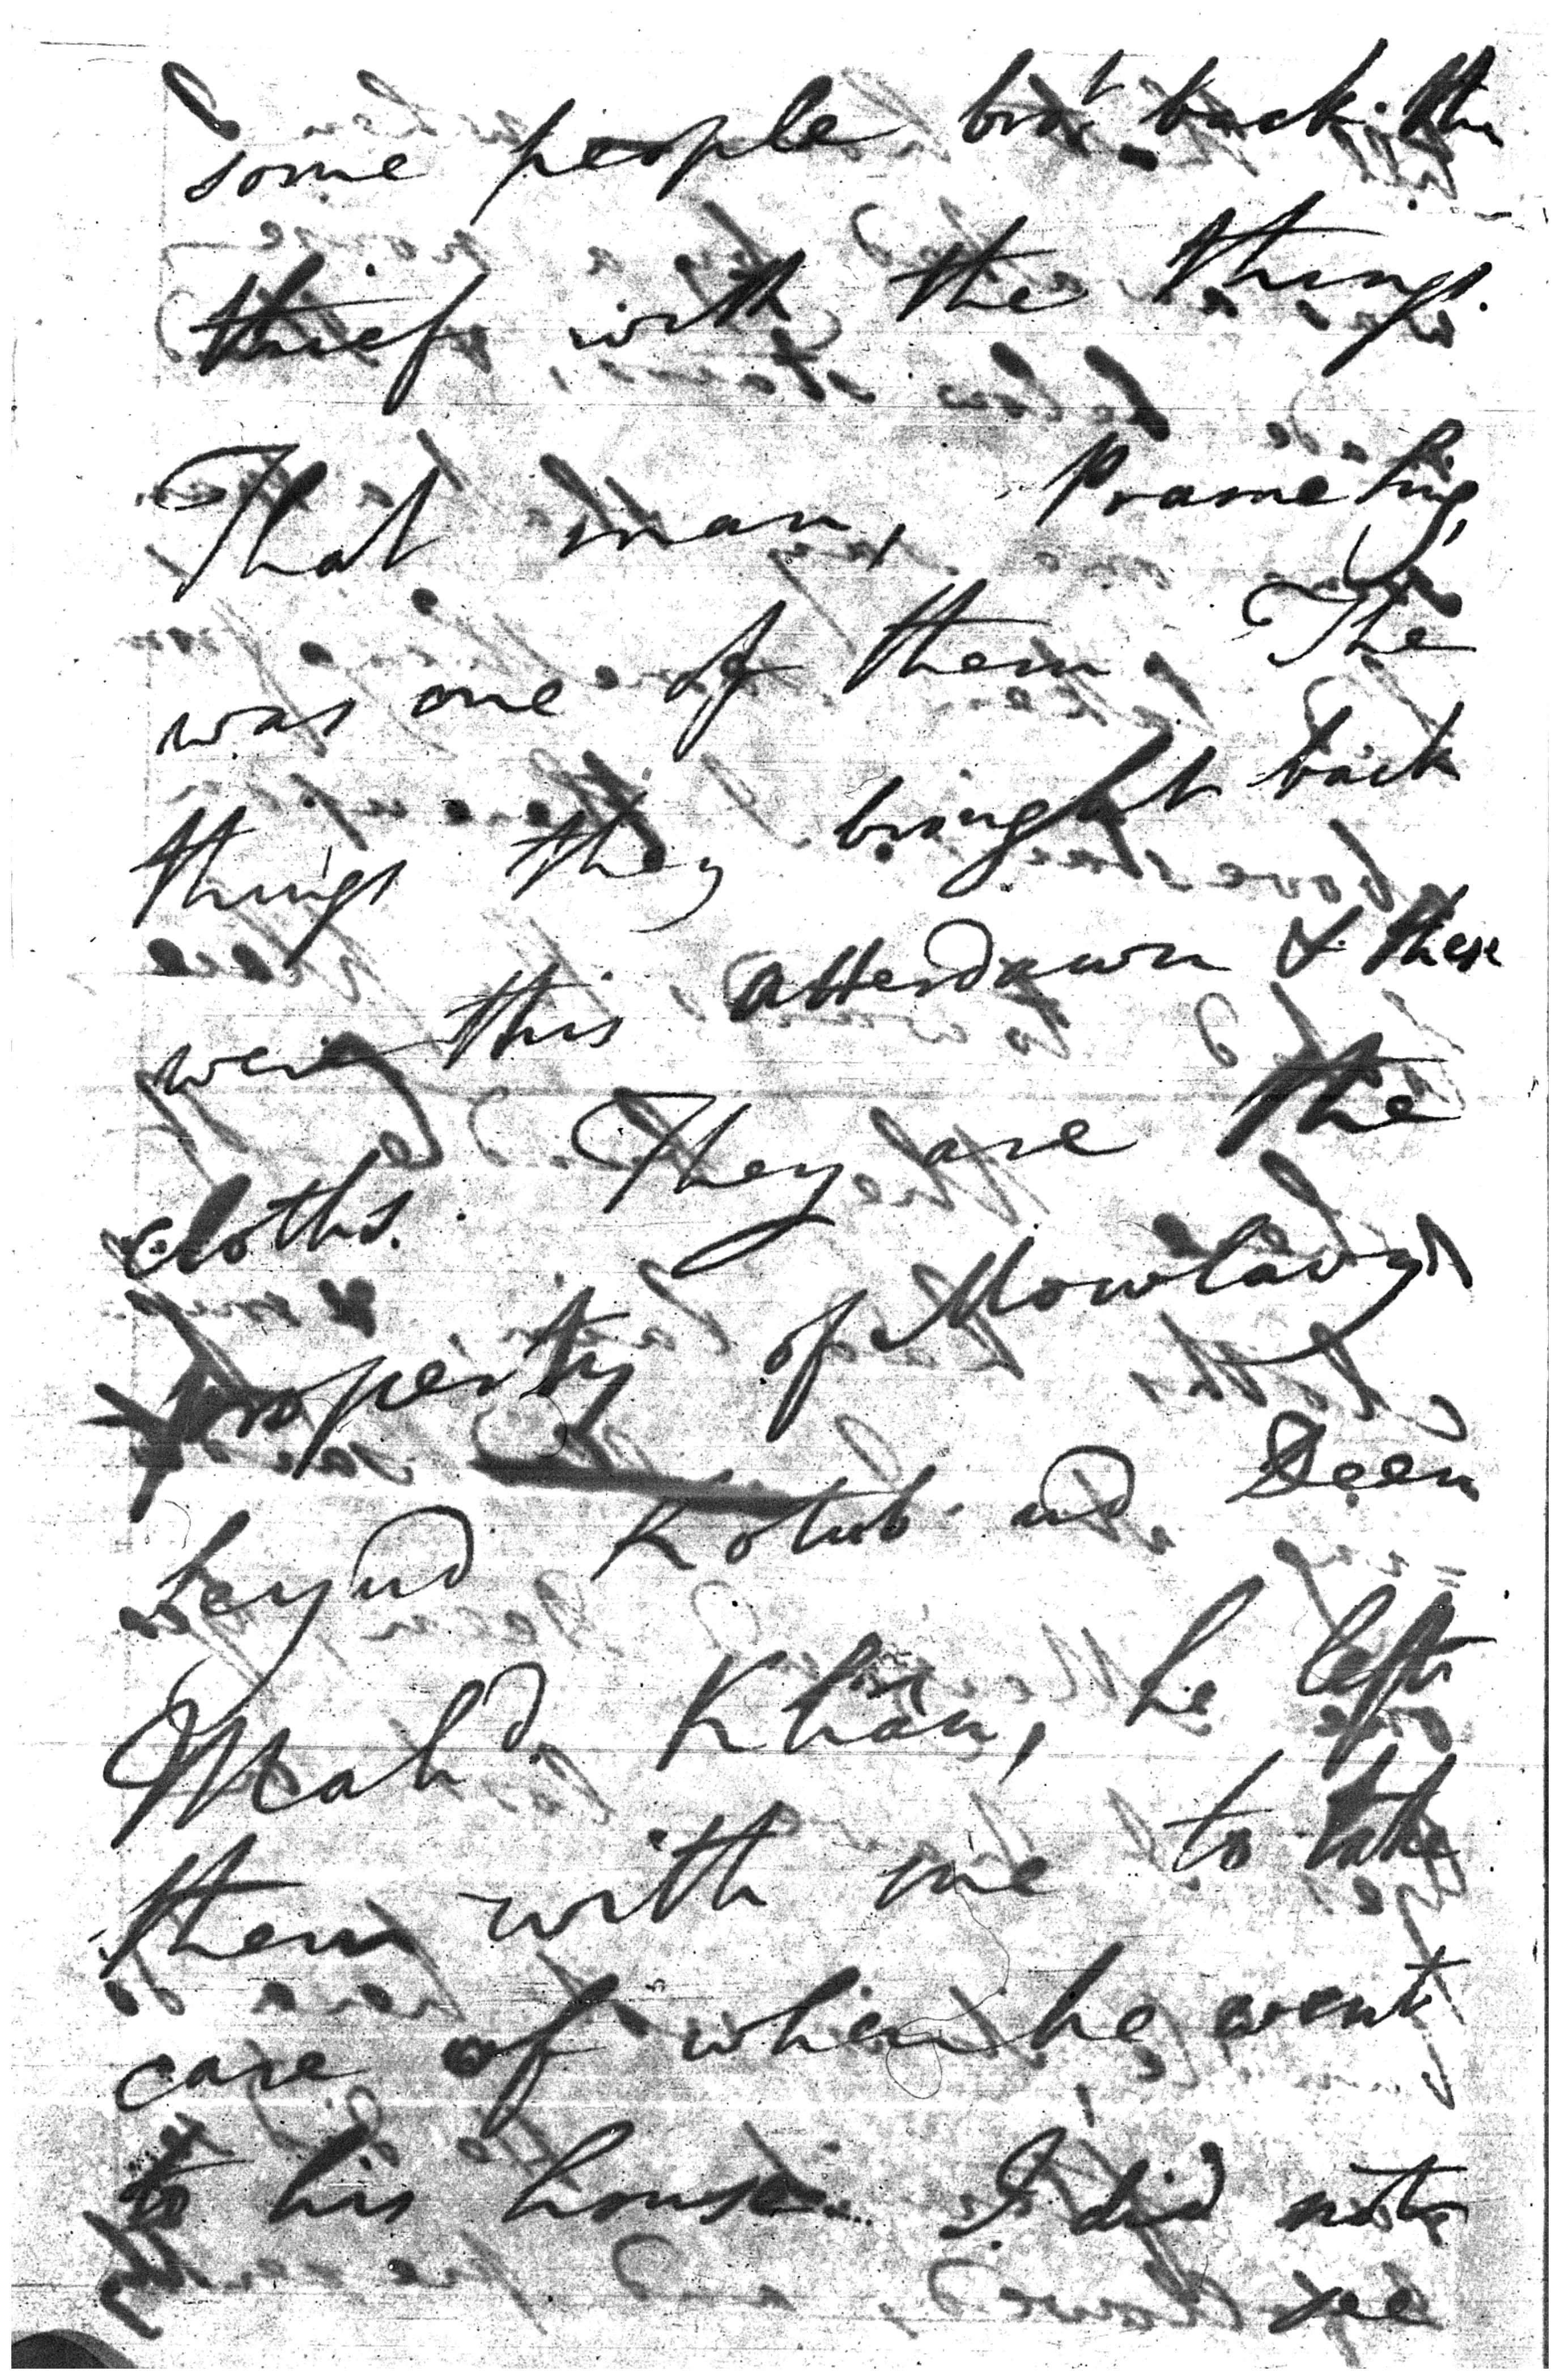 some people brot back the
thief with the things.
That man, Prame Sing,
was one of them. The
things they brought back
were this atterdawn & these
cloths. They are the
property of Mowlavy
Seyud Kotub ud Deen
Mahd. Khan, he left
them with me to take
care of when he went
to his house. I did not
see